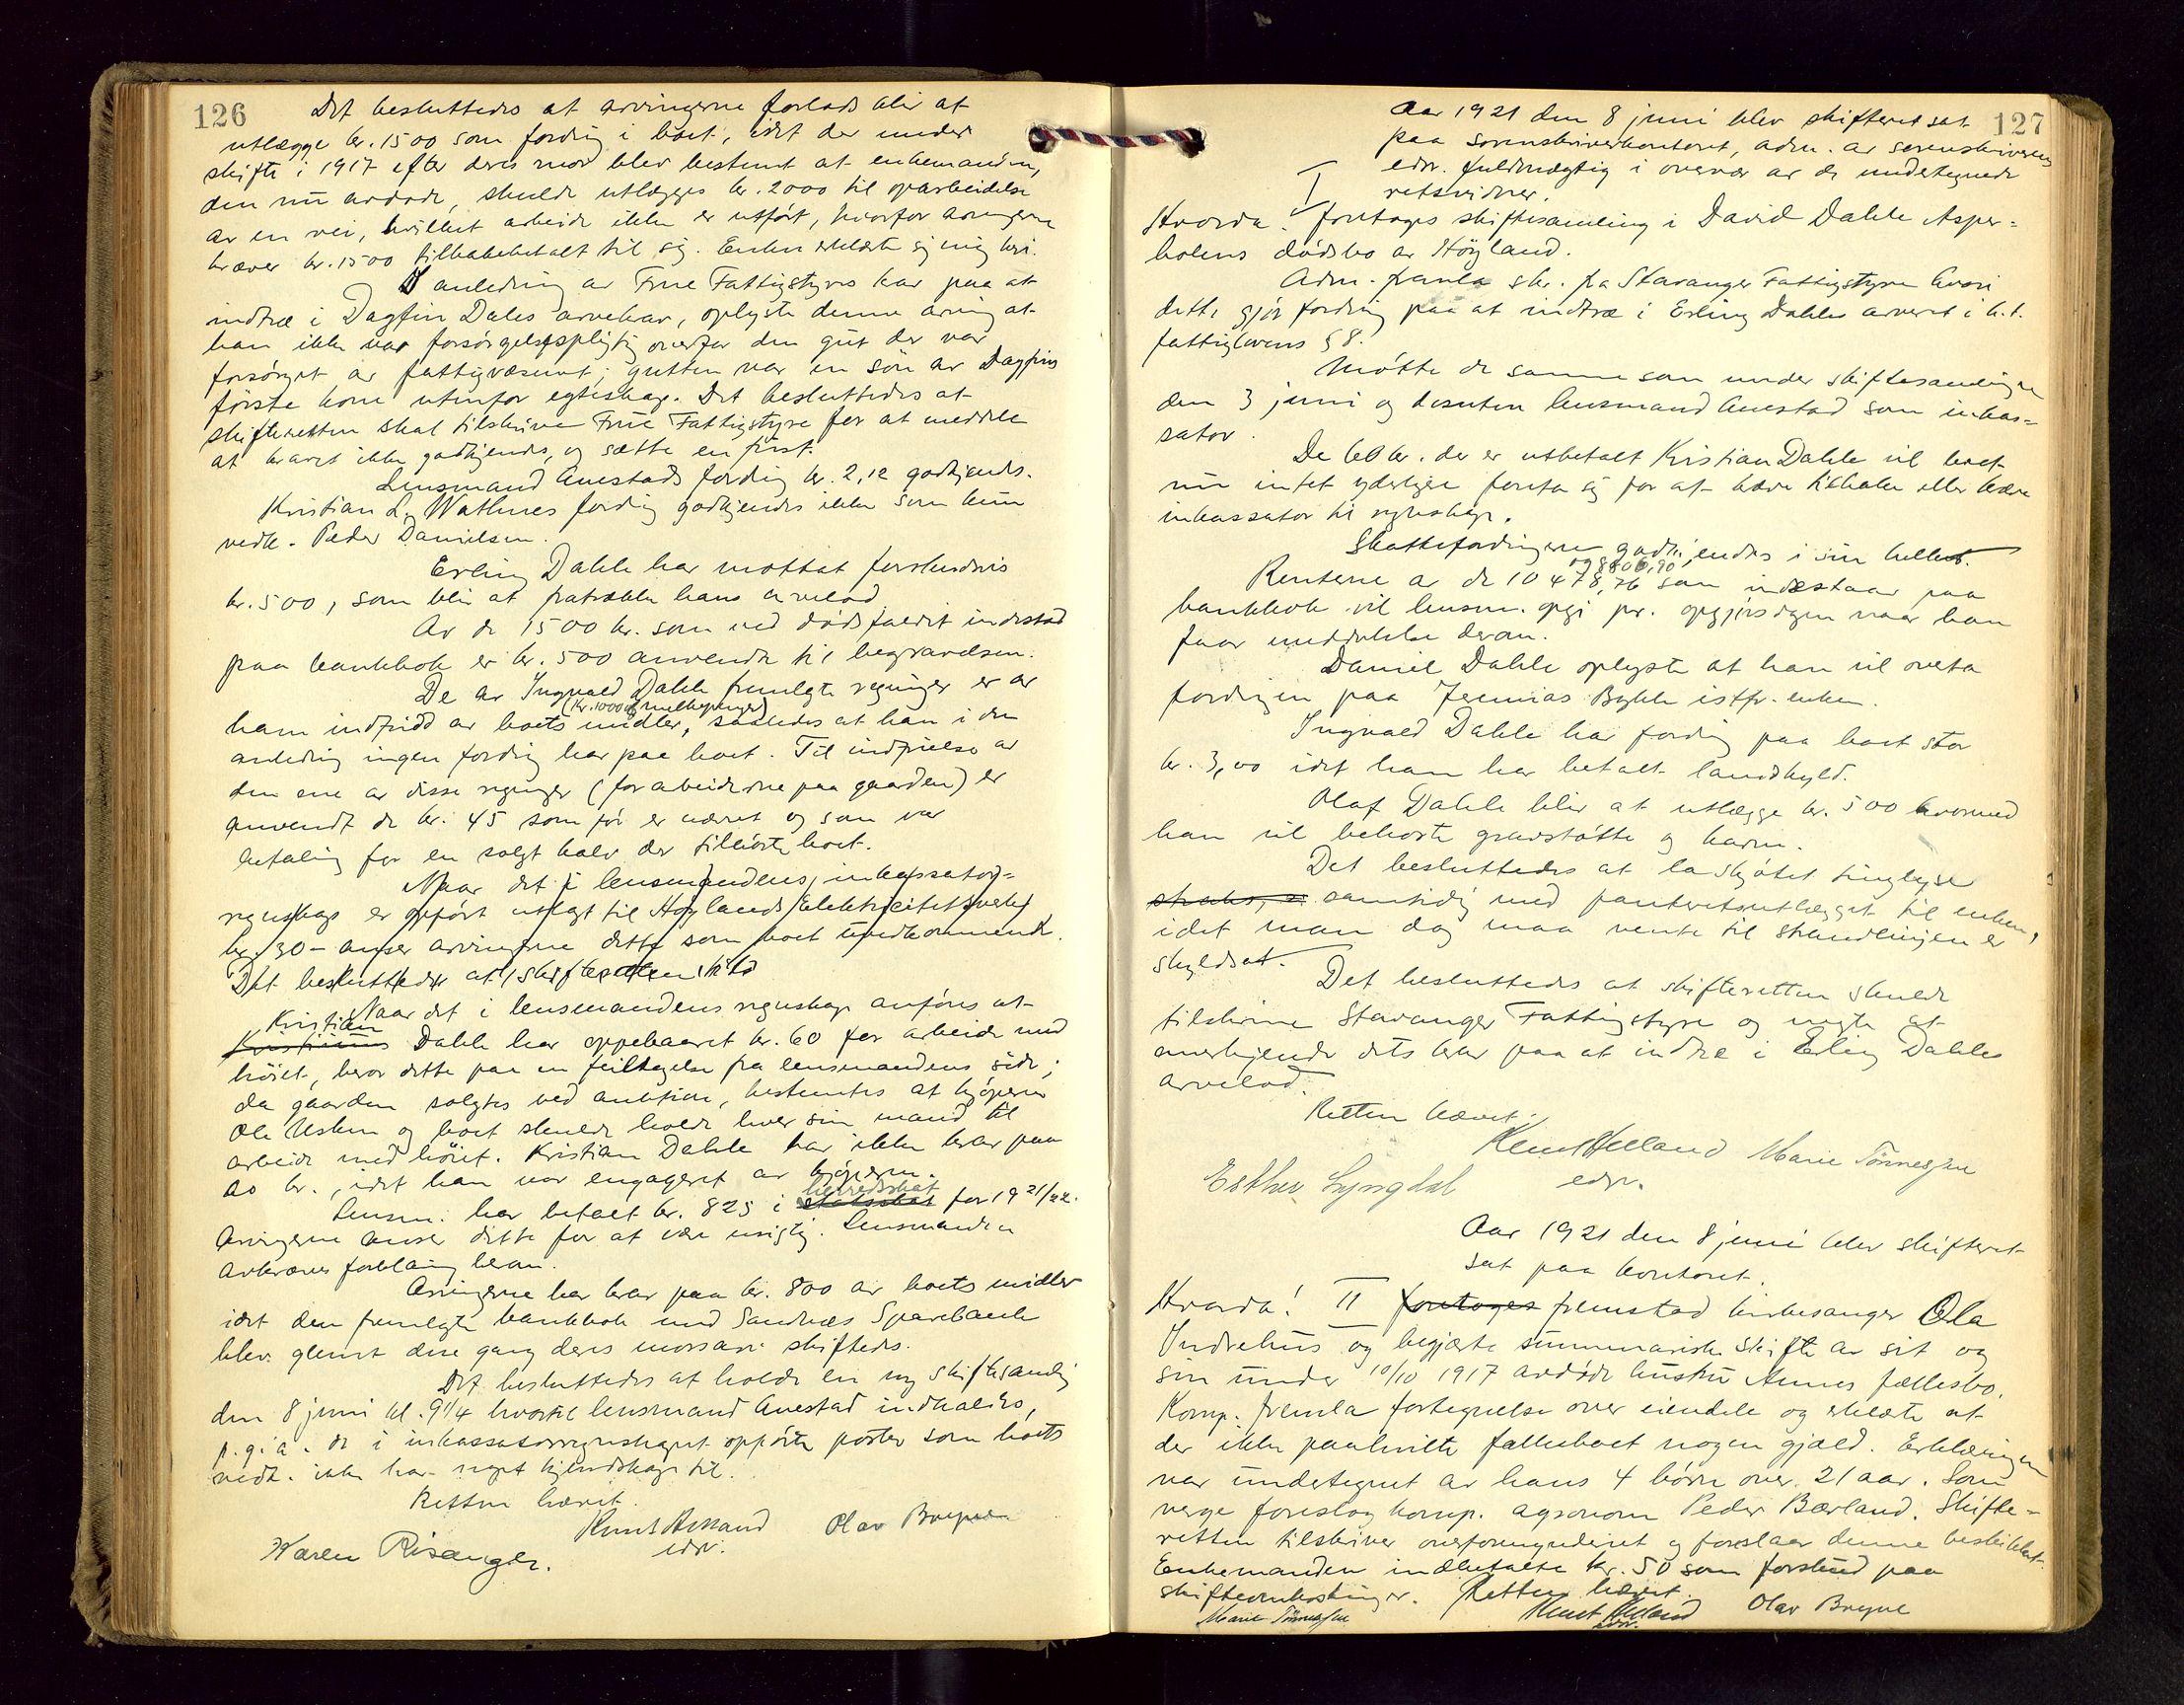 126
Det besluttedes at arvingerne forlods blir at
utlægge kr. 1500 som fordring i boet, idet der under
skifte i 1917 efter deres mor blev bestemt at enkemanden,
den nu avdøde, skulde utlægges kr. 2000 til oparbeidelse
av en vei, hvilket arbeide ikke er utført, hvorfor arvingerne
kræver kr. 1500 tilbakebetalt til sig. Enken erklærte sig enig heri.
I anledning av Time Fattigstyres krav paa at
indtræ i Dagfin Dales arvekrav, oplyste denne arving at
han ikke var forsørgelsespligtig overfor den gut der var
forsørget av fattigvæsenet; gutten var en søn av Dagfins
første kone utenfor egteskap. Det besluttedes at
skifteretten skal tilskrive Time Fattigstyre for at meddele
at kravet ikke godkjendes, og sætte en frist.
Lensmand Auestads fordring kr. 2,12 godkjendes.
Kristian L. Wathnes fordring godkjendes ikke som kun
vedk. Peder Danielsen.
Erling Dahle har mottat forskudsvis
kr. 500, som blir at fratrække hans arvelod.
Av de 1500 kr. som ved dødsfaldet indestod
paa bankbok er kr. 500 anvendt til begravelsen.
De av Ingvald Dahle fremlagte regninger er av
(kr. 1000 og melkepenger)
ham indfridd av boets midler, saaledes at han i den
anledning ingen fordring har paa boet. Til indfrielse av
den ene av disse regninger (for arbeiderne paa gaarden) er
anvendt de kr. 45 som før er nævnt og som var
betaling for en solgt kalv der tilhørte boet.
Naar det i lensmandens inkassator=
regnskap er opført utlagt til Høylands Elektricitetsverk
kr. 30- anser arvingerne dette som boet uvedkommende.
Det besluttedes at skifteretten
Naar det i lensmandens regnskap anføres at
Kristian
Kristians Dahle har oppebaaret kr. 60 for arbeide med
høiet, beror dette paa en feiltagelse fra lensmandens side;
da gaarden solgtes ved auktion, bestemtes at kjøperen
Ole Usken og boet skulde holde hver sin mand til
arbeide med høiet. Kristian Dahle har ikke krav paa
60 kr., idet han var engageret av kjøperen.
herredsskat
Lensm. har betalt kr. 825 i statsskat for 1921/22.
Arvingerne anser dette for at være urigtig. Lensmanden
avkræves forklaring herom.
Arvingerne har krav paa kr. 800 av boets midler
idet den fremlagte bankbok med Sandnes Sparebank
blev glemt dengang deres morsarv skiftedes.
Det besluttedes at holde en ny skiftesamling
den 8 juni kl. 9 1/4 hvortil lensmand Auestad indkaldes,
p.g.a. de i inkassatorregnskapet opførte poster som boets
vedk. ikke har noget kjendskap til.
Retten hævet.
Knut Helland Olav Bryne
edsv.
Karen Risanger.
127
Aar 1921 den 8 juni blev skifteret sat
paa sorenskriverkontoret, adm. av sorenskriverens
edsv. fuldmægtig i overvær av de undertegnede
retsvidner.
I
Hvorda! foretoges skiftesamling i David Dahle Asper=
holens dødsbo av Høyland.
Adm. fremla skr. fra Stavanger Fattigstyre hvori
dette gjør fordring paa at indtræ i Erling Dahles arveret i h.t.
fattiglovens § 8.
Møtte de samme som under skiftesamlingen
den 3 juni og desuten lensmand Auestad som inkas=
sator.
De 60 kr. der er utbetalt Kristian Dahle vil boet
nu intet yderligere foreta sig for at kræve tilbake eller kræve
inkassator til regnskap.
Skattefordringerne godkjendes i sin helhet.
og 8806,90
Renterne av de 10478,76 som indestaar paa
bankbok vil lensm. opgi pr. opgjørsdagen naar han
faar meddelelse derom.
Daniel Dahle oplyste at han vil overta
fordringen paa Jeremias Bykle istf. enken.
Ingvald Dahle har fordring paa boet stor
kr. 3,00 idet han har betalt landskyld.
Olaf Dahle blir at utlægge kr. 500 hvormed
han vil bekoste gravstøtte og karm.
Det besluttedes at la skjøtet tinglyse
straks, samtidig med panteretsutlægget til enken,
idet man dog maa vente til strandlinjen er
skyldsat.
Det besluttedes at skifteretten skulde
tilskrive Stavanger Fattigstyre og negte at
anerkjende dets krav paa at indtræ i Erling Dahles
arvelod.
Retten hævet.
Knut Helland Marie Tønnessen
Esther Lyngdal edsv.
Aar 1921 den 8 juni blev skifteret
sat paa kontoret.
Hvorda! II foretoges fremstod kirkesanger Ola
Indrehus og begjærte summarisk skifte av sit og
sin under 10/10 1917 avdøde hustru Annes fællesbo.
Komp. fremla fortegnelse over eiendele og erklærte at
der ikke paahvilte fællesboet nogen gjæld. Erklæringen
var undertegnet av hans 4 børn over 21 aar. Som
verge foreslog komp. agronom Peder Bærland. Skifte=
retten tilskriver overformynderiet og foreslaar denne beskikket.
Enkemanden indbetalte kr. 50 som forskud paa
skifteomkostninger. Retten hævet.
Marie Tønnessen Knut Helland Olav Bryne
edsv.